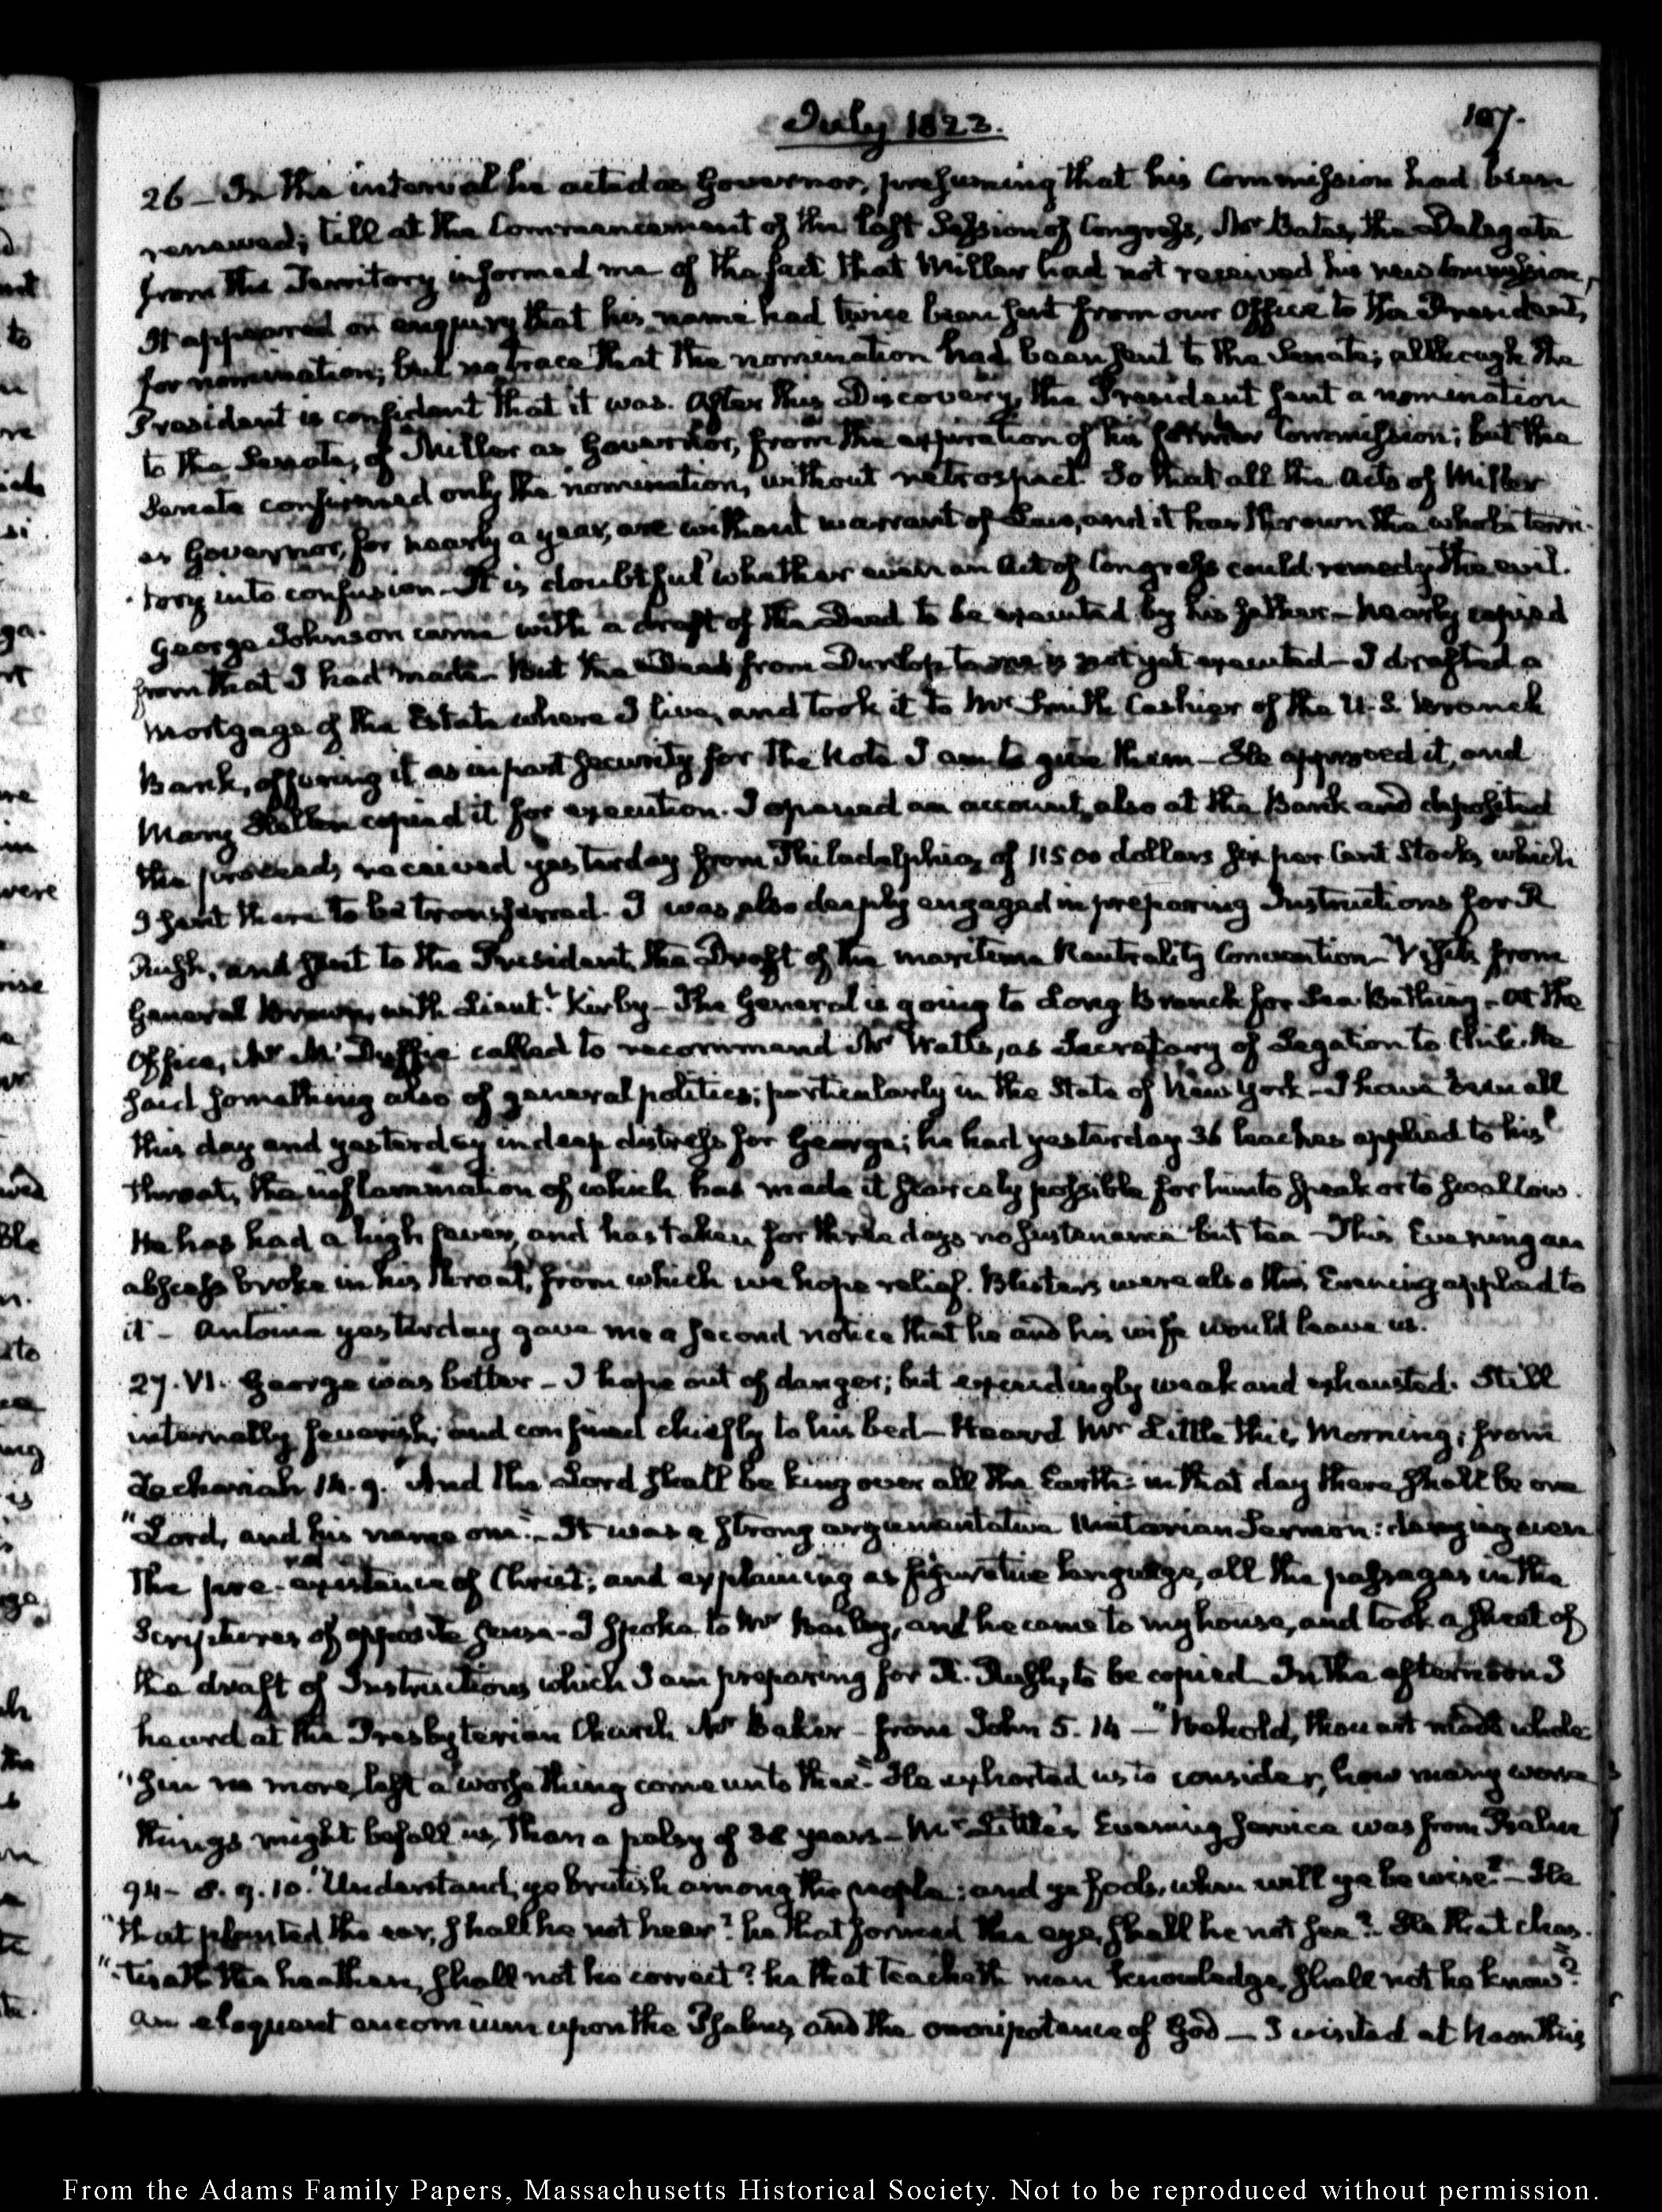 July 1823.
107.
26 – In the interval he acted as Governor, presuming that his Commission had been
renewed; till at the Commencement of the last Session of Congress, Mr Bates, the Delegate
from the Territory informed me of the fact that Miller had not received his new Commission,
It appeared on enquiry that his name had twice been sent from our Office to the President,
for nomination; but no trace that the nomination had been sent to the Senate; although the
President is confident that it was. After this Discovery, the President sent a nomination
to the Senate, of Miller as Governor, from the expiration of his former Commission; but the
Senate confirmed only the nomination, without retrospect. So that all the Acts of Miller
as Governor, for nearly a year, are without warrant of Law, and it has thrown the whole terri-
-tory into confusion – It is doubtful whether even an Act of Congress could remedy the evil.
George Johnson came with a draft of the Deed to be executed by his father – nearly copied
from that I had made – But the Deed from Dunlop to me is not yet executed – I drafted a
Mortgage of the Estate where I live, and took it to Mr Smith Cashier of the U.S. Branch
Bank, offering it as in part security for the Note I am to give them – He approved it, and
Mary Hellen copied it for execution. I opened an account also at the Bank and deposited
the proceeds received yesterday from Philadelphia, of 11500 dollars six per Cent Stocks, which
I sent there to be transferred. I was also deeply engaged in preparing Instructions for R
Rush, and sent to the President, the Draft of the maritime Neutrality Convention – Visits from
General Brown, with Lieutt. Kirby – The General is going to Long Branch for Sea Bathing – At the
Office, Mr McDuffie called to recommend Mr Watts, as Secretary of Legation to Chili. He
said something also of general politics; particularly in the State of New York – I have been all
this day and yesterday in deep distress for George; he had yesterday 36 leaches applied to his
throat, the inflammation of which has made it scarcely possible for him to speak or to swallow.
He has had a high fever, and has taken for three days no sustenance but tea – This Evening an
abscess broke in his throat, from which we hope relief. Blisters were also this Evening applied to
it – Antoine yesterday gave me a second notice that he and his wife would leave us.
27. VI. George was better – I hope out of danger; but exceedingly weak and exhausted. Still
internally feverish; and confined chiefly to his bed – Heard Mr Little this Morning; from
Zechariah 14. 9. "And the Lord shall be king over all the Earth: in that day there shall be one
"Lord, and his name one." – It was a strong argumentative Unitarian Sermon: denying even
the pre-existence of Christ; and explaining as figurative language, all the passages in the
Scriptures of opposite sense – I spoke to Mr Bailey, and he came to my house, and took a sheet of
the draft of Instructions which I am preparing for R. Rush, to be copied – In the afternoon I
heard at the Presbyterian Church Mr Baker – from John 5. 14 – "Behold, thou art made whole
"sin no more, lest a worse thing come unto thee." He exhorted us to consider, how many worse
things might befall us, than a palsy of 38 years – Mr Little's Evening service was from Psalm
94 – 8. 9. 10. "Understand, ye brutish among the people; and ye fools, when will ye be wise? – He
"that planted the ear, shall he not hear? he that formed the eye, shall he not see? – He that chas-
"-tiseth the heathen, shall not he correct? he that teacheth man knowledge, shall not he know?"
an eloquent encomium upon the Psalms, and the omnipotence of God – I visited at Noon this
From the Adams Family Papers, Massachusetts Historical Society. Not to be reproduced without permission.